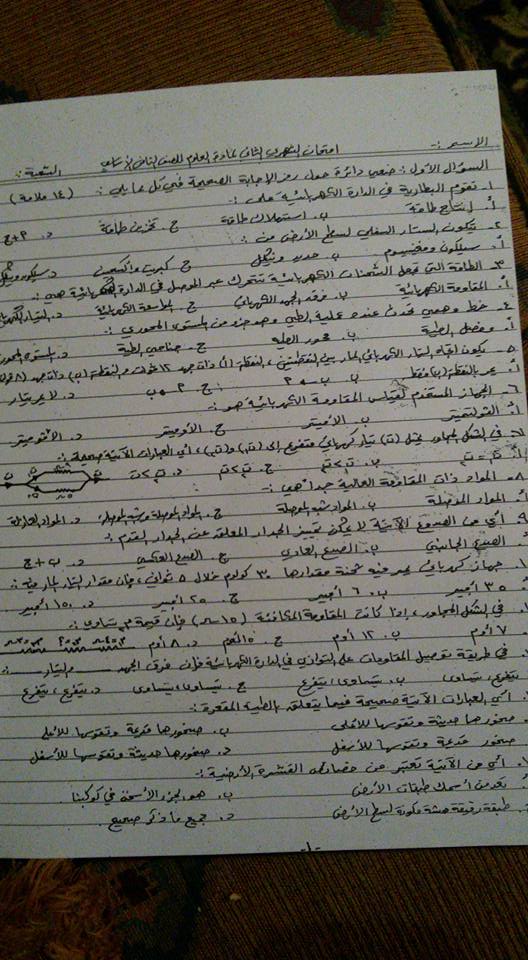 الاسم :- امتحان الشهري الثاني لمادة العلوم للصف الثامن الأساسي الشعبة :
السؤال الأول : ضعي دائرة حول رمز الإجابة الصحيحة في كل مما يلي : (١٤ علامة)
١- تقوم البطارية في الدارة الكهربائية على :
أ. إنتاج طاقة ب. استهلاك طاقة ج. تخزين طاقة د. أ + ج
٢- يتكون الستار السفلي لسطح الأرض من :
أ. سيلكون ومغنيسيوم ب. حديد ونيكل ج. كبريت وأكسجين د. سيلكون ونيكل
٣- الطاقة التي تجعل الشحنات الكهربائية تتحرك عبر الموصل في الدارة الكهربائية هي :
أ. المقاومة الكهربائية ب. فرق الجهد الكهربائي ج. الكهربائية د. التيار الكهربائي
٤- خط وهمي تحدث عنده عملية الطي وهو جزء من المستوى المحوري :
أ. مفصل الطية ب. محور الطية ج. جناحي الطية د. المستوى المحوري
٥- يكون اتجاه التيار الكهربائي المار بين النقطتين ، النقطة (أ) ذات جهد ١٢ فولت والنقطة (ب) ذات جهد (٨ فولت)
أ. عبر النقطة (ب) فقط ب. ب ← أ ج. أ ← ب د. لا يمر تيار
٦- الجهاز المستخدم لقياس المقاومة الكهربائية هو :
أ. الفولتميتر ب. الأميتر ج. الأوميتر
٧- في الشكل المجاور يمثل (ت) تيار كهربائي متفرع إلى (ت١) و(ت٢) ، أي العبارات الآتية صحيحة :
٨- المواد ذات المقاومة العالية جداً هي :
أ. المواد الموصلة ب. المواد شبه الموصلة ج. المواد الموصلة وشبه الموصلة د. المواد العازلة
٩- أي من الصدوع الآتية لا يمكن تمييز الجدار المعلق عن الجدار القدم :
أ. الصدع الجانبي ب. الصدع العادي ج. الصدع العكسي د. ب + ج
جهاز كهربائي يمر فيه شحنة مقدارها ٣٠ كولوم خلال ٥ ثواني ، فإن مقدار التيار المار فيه :
٣٥ أمبير ب. ٦ أمبير ج. ٢٥ أمبير د. ١٥٠ أمبير
في الشكل المجاور ، إذا كانت المقاومة المكافئة (١٥) فإن قيمة م تساوي :
٧ أوم ب. ١٢ أوم ج. ١٥ أوم د. ٨ أوم
في طريقة توصيل المقاومات على التوازي في الدارة الكهربائية فإن فرق الجهد و التيار
يتفرع ، يتساوى ب. يتساوى ، يتفرع ج. يتساوى ، يتساوى د. يتفرع ، يتفرع
أي العبارات الآتية صحيحة فيما يتعلق بالطية المقعرة :
صخورها حديثة وتقوسها للأعلى ب. صخورها قديمة وتقوسها للأعلى
صخور قديمة وتقوسها للأسفل د. صخورها حديثة وتقوسها للأسفل
أي من الآتية تعتبر من خصائص القشرة الأرضية :
تعد من أسمك طبقات الأرض ب. هو الجزء الأسخن في كوكبنا
طبقة رقيقة هشة مكونة لسطح الأرض د. جميع ما ذكر صحيح
-١-